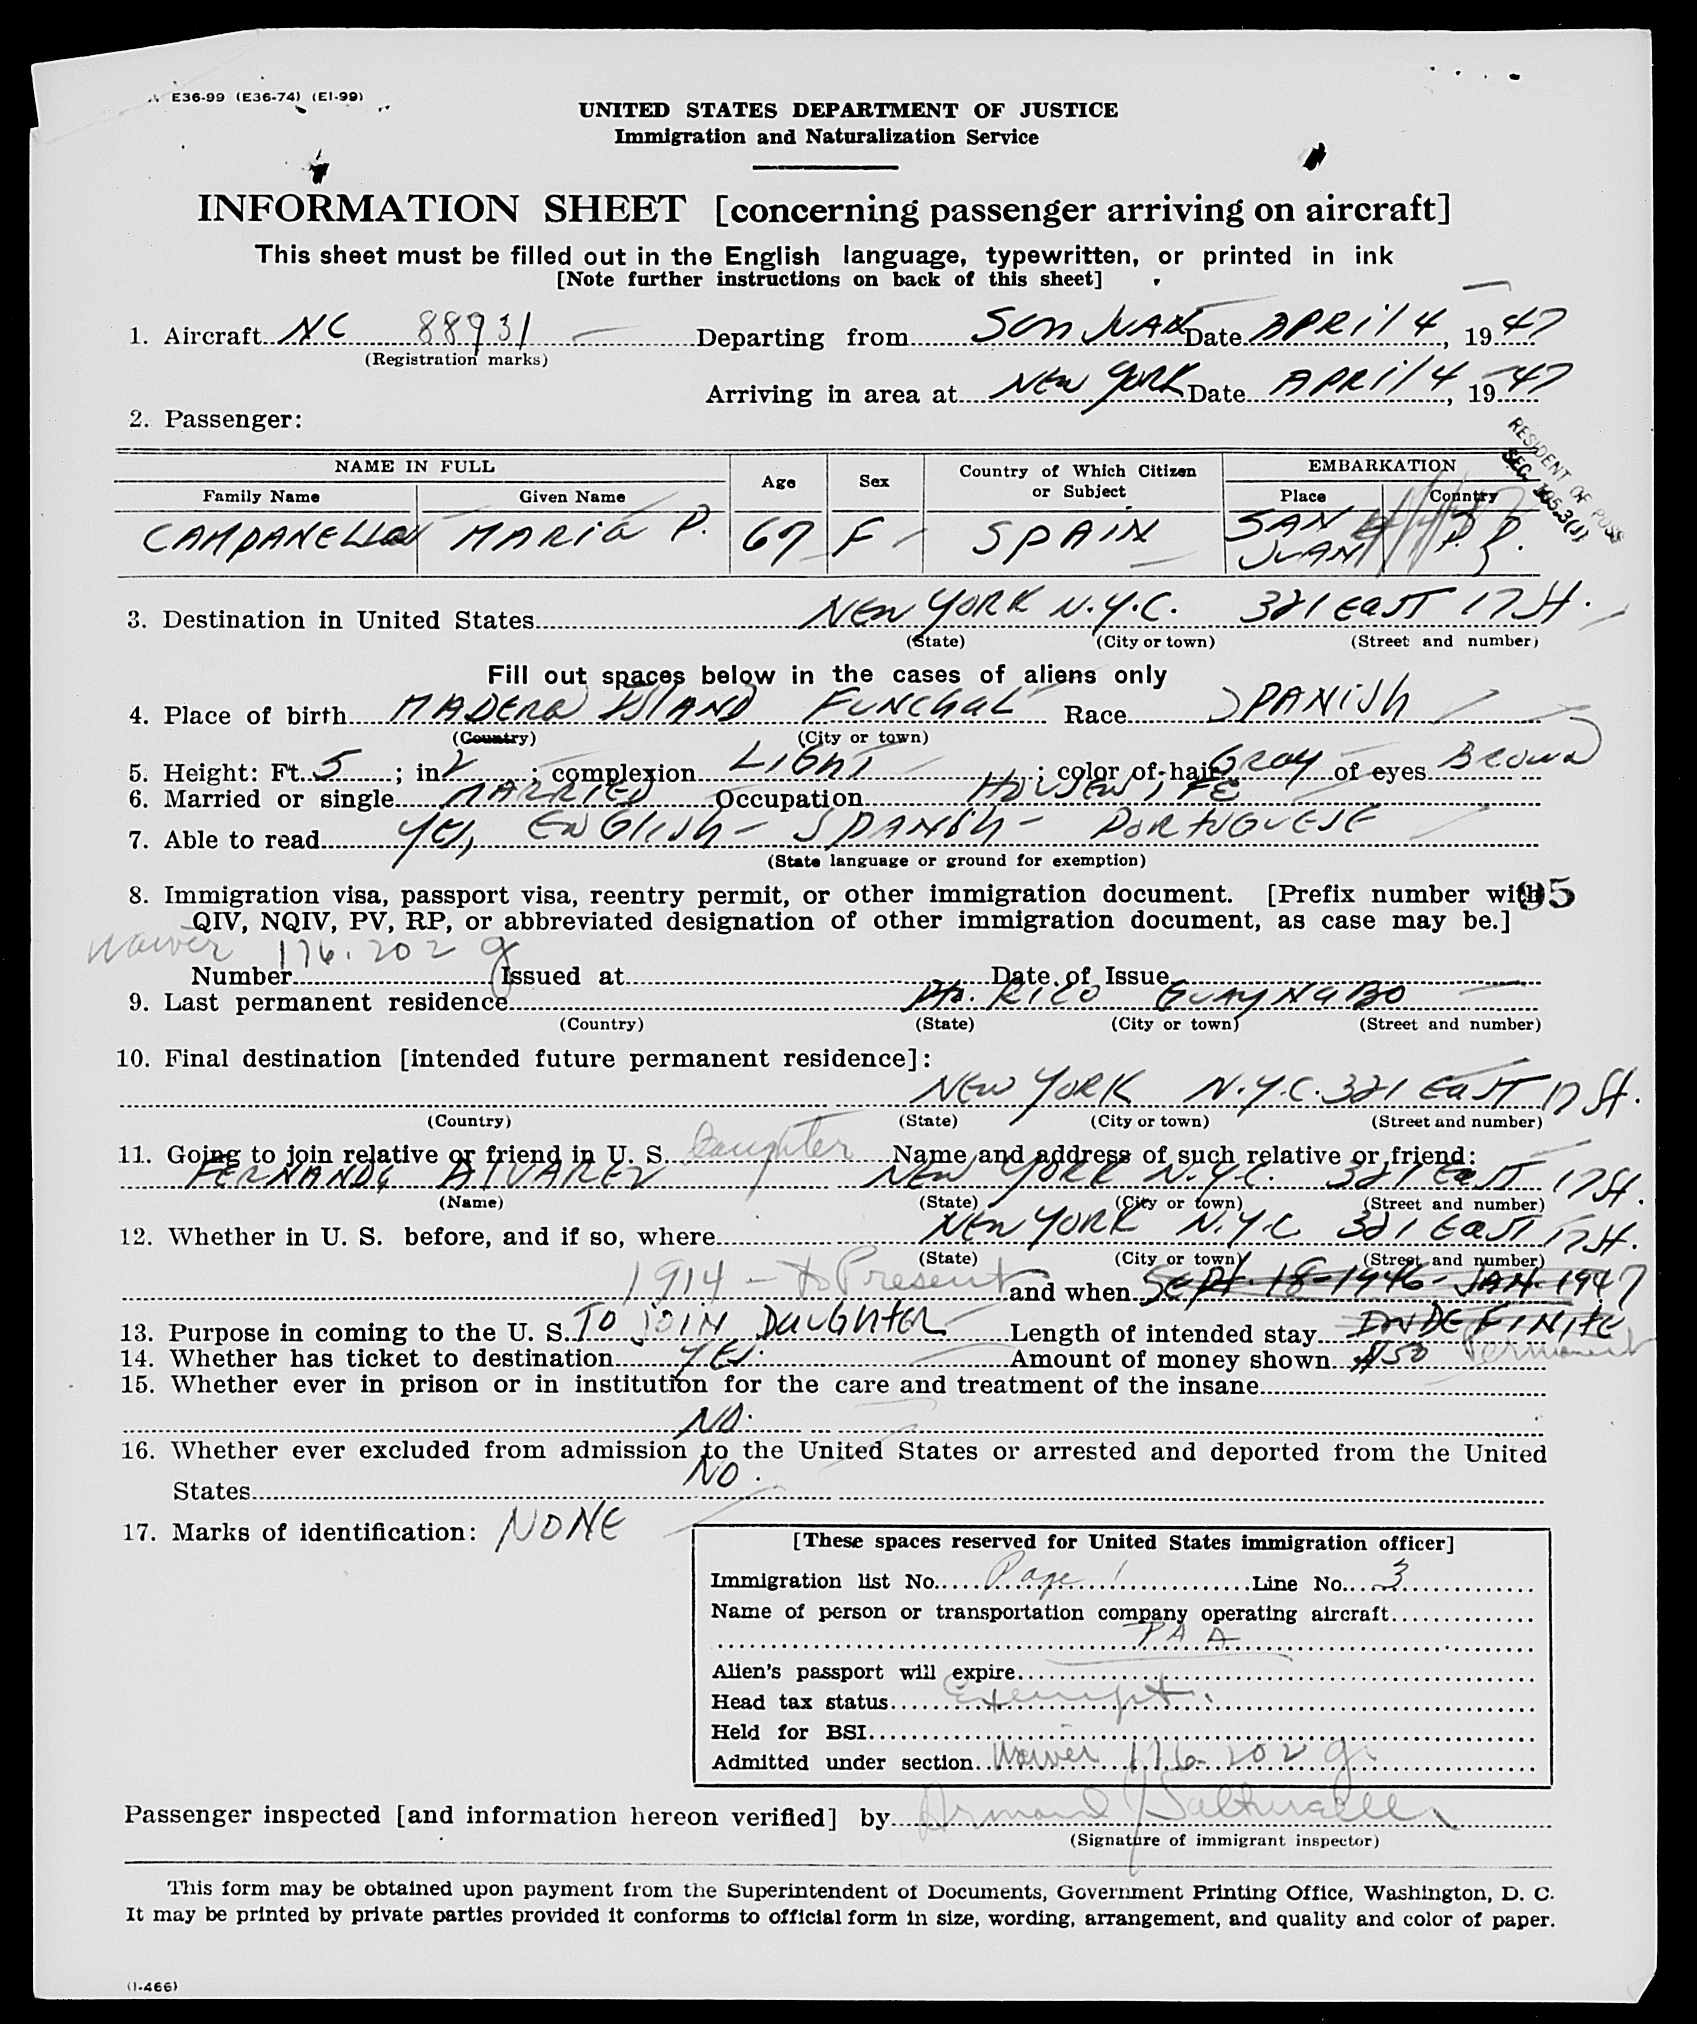 E36-99 (E36-74) (EI-99)
UNITED STATES DEPARTMENT OF JUSTICE
Immigration and Naturalization Service
INFORMATION SHEET [concerning passenger arriving on aircraft]
This sheet must be filled out in the English language, typewritten, or printed in ink
[Note further instructions on back of this sheet]
1. Aircraft NC 88931 Departing from SAN JUAN Date APRil 4, 1947
(Registration marks)
Arriving in area at NEW YORK Date APRil 4, 1947
2. Passenger:
RESIDENT OF POSS
SEC. 105.3(J)
NAME IN FULL Age Sex Country of Which Citizen or Subject EMBARKATION
Family Name Given Name Place Country
CAMPANELLA MARIA P. 67 F SPAIN SAN JUAN P.R.
3. Destination in United States NEW YORK N.Y.C. 321 EAST 17 St.
(State) (City or town) (Street and number)
Fill out spaces below in the cases of aliens only
4. Place of birth MADERA ISLAND FUNCHAL Race SPANISH
(Country) (City or town)
5. Height: Ft. 5; in 2; complexion LIGHT; color of hair Gray of eyes Brown
6. Married or single MARRIED Occupation HOUSEWIFE
7. Able to read YES, ENGLISH - SPANISH - PORTUGUESE
(State language or ground for exemption)
8. Immigration visa, passport visa, reentry permit, or other immigration document. [Prefix number with 95
QIV, NQIV, PV, RP, or abbreviated designation of other immigration document, as case may be.]
Waiver 176.202 g
Number Issued at Date of Issue
9. Last permanent residence Pto. RICO GUAYNABO
(Country) (State) (City or town) (Street and number)
10. Final destination [intended future permanent residence]:
NEW YORK N.Y.C. 321 EAST 17 St.
(Country) (State) (City or town) (Street and number)
11. Going to join relative or friend in U. S. Daughter Name and address of such relative or friend:
FERNANDA ALVAREZ NEW YORK N.Y.C. 321 EAST 17 St.
(Name) (State) (City or town) (Street and number)
12. Whether in U. S. before, and if so, where NEW YORK N.Y.C 321 EAST 17 St.
(State) (City or town) (Street and number)
1914 - to Present and when SEPT. 18-1946 - JAN. 1947
13. Purpose in coming to the U. S. TO JOIN DAUGHTER Length of intended stay INDEFINITE Permanent
14. Whether has ticket to destination YES. Amount of money shown $50
15. Whether ever in prison or in institution for the care and treatment of the insane
NO.
16. Whether ever excluded from admission to the United States or arrested and deported from the United
States NO.
17. Marks of identification: NONE
[These spaces reserved for United States immigration officer]
Immigration list No. Page 1 Line No. 3
Name of person or transportation company operating aircraft
PAA
Alien's passport will expire
Head tax status Exempt.
Held for BSI
Admitted under section Waiver 176-202 g.
Passenger inspected [and information hereon verified] by Armand J
(Signature of immigrant inspector)
This form may be obtained upon payment from the Superintendent of Documents, Government Printing Office, Washington, D. C.
It may be printed by private parties provided it conforms to official form in size, wording, arrangement, and quality and color of paper.
(I-466)